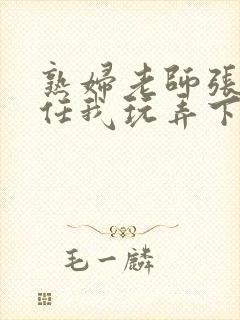 熟婦老師張
任我玩弄下
毛一麟